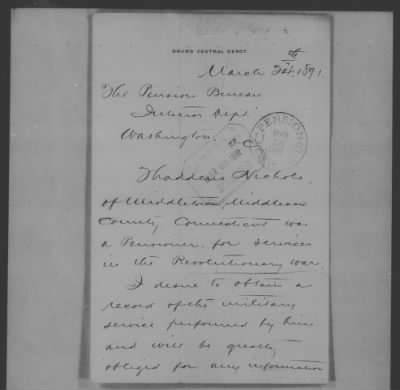 GRAND CENTRAL DEPOT.
March 1891.
The Pension Bureau
Interior Dept.
Washington. D.C.
PENSIONS
MAR
Thaddeus Nichols,
of Middletown, Middlesex
County Connecticut was
a Pensioner, for services
in the Revolutionary War.
I desire to obtain a
record of the military
service performed by him
and will be greatly
obliged for any information